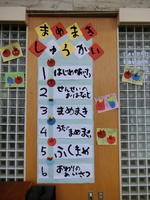 まめまき
しゅうかい
1 はじめのあいさつ
2 せんせいの
おはなし
3 まめまき
4 うた まめまき
5 ふくまめ
6 おわりの
あいさつ